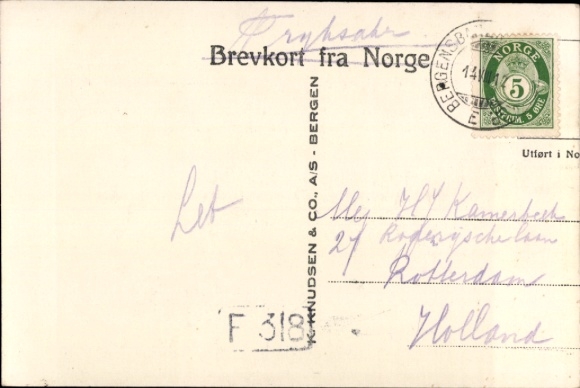 Tryksaker
Brevkort fra Norge
BERGENSB
14 VII 1
NORGE
5
POSTFRIM. 5 ØRE
Utført i No
K. KNUDSEN & CO., A/S - BERGEN
HJ Kamerbeek
27
Rotterdam
Holland
F 318